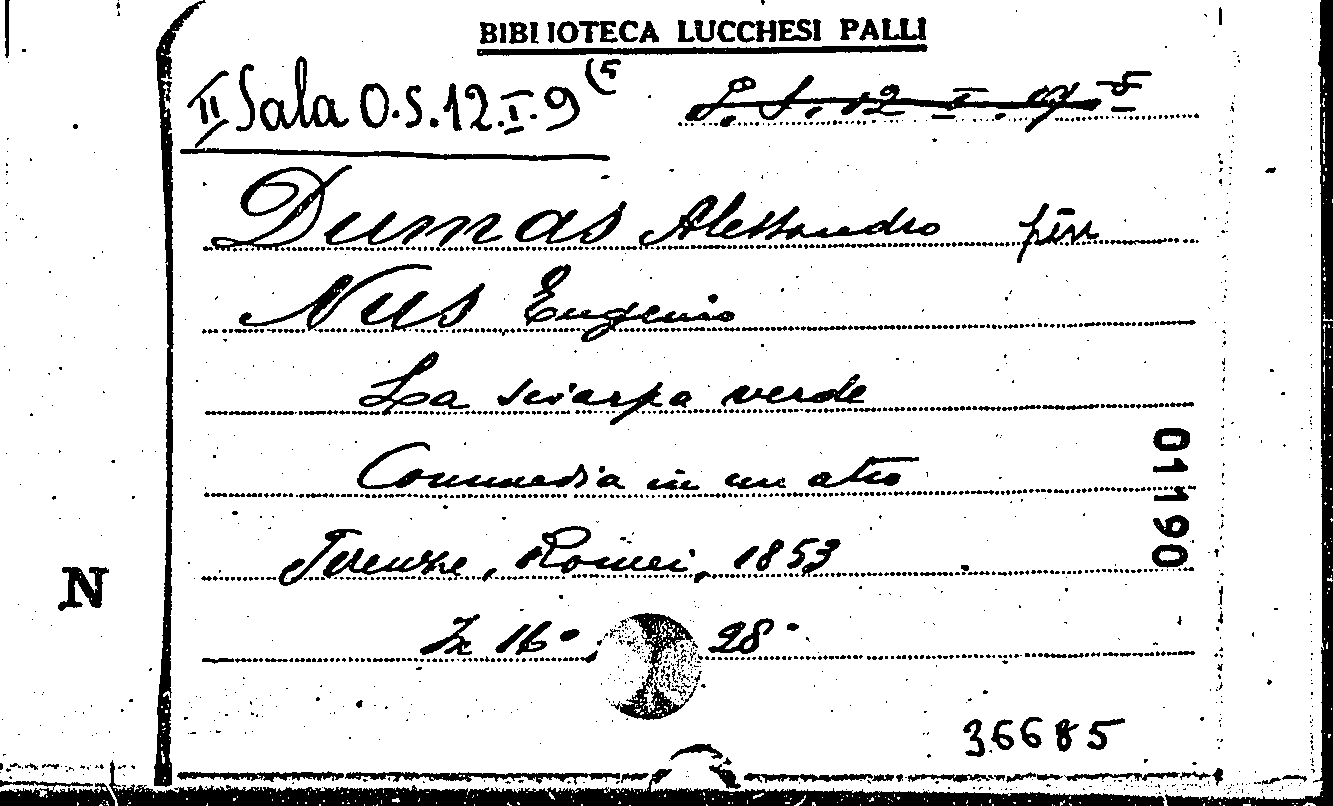 BIBLIOTECA LUCCHESI PALLI
II Sala O.S.12.I.9 (5
Dumas Alessandro père
Nus Eugenio
La sciarpa verde
Commedia in un atto
Firenze, Romei, 1853
In 16°, 28
01190
N
36685